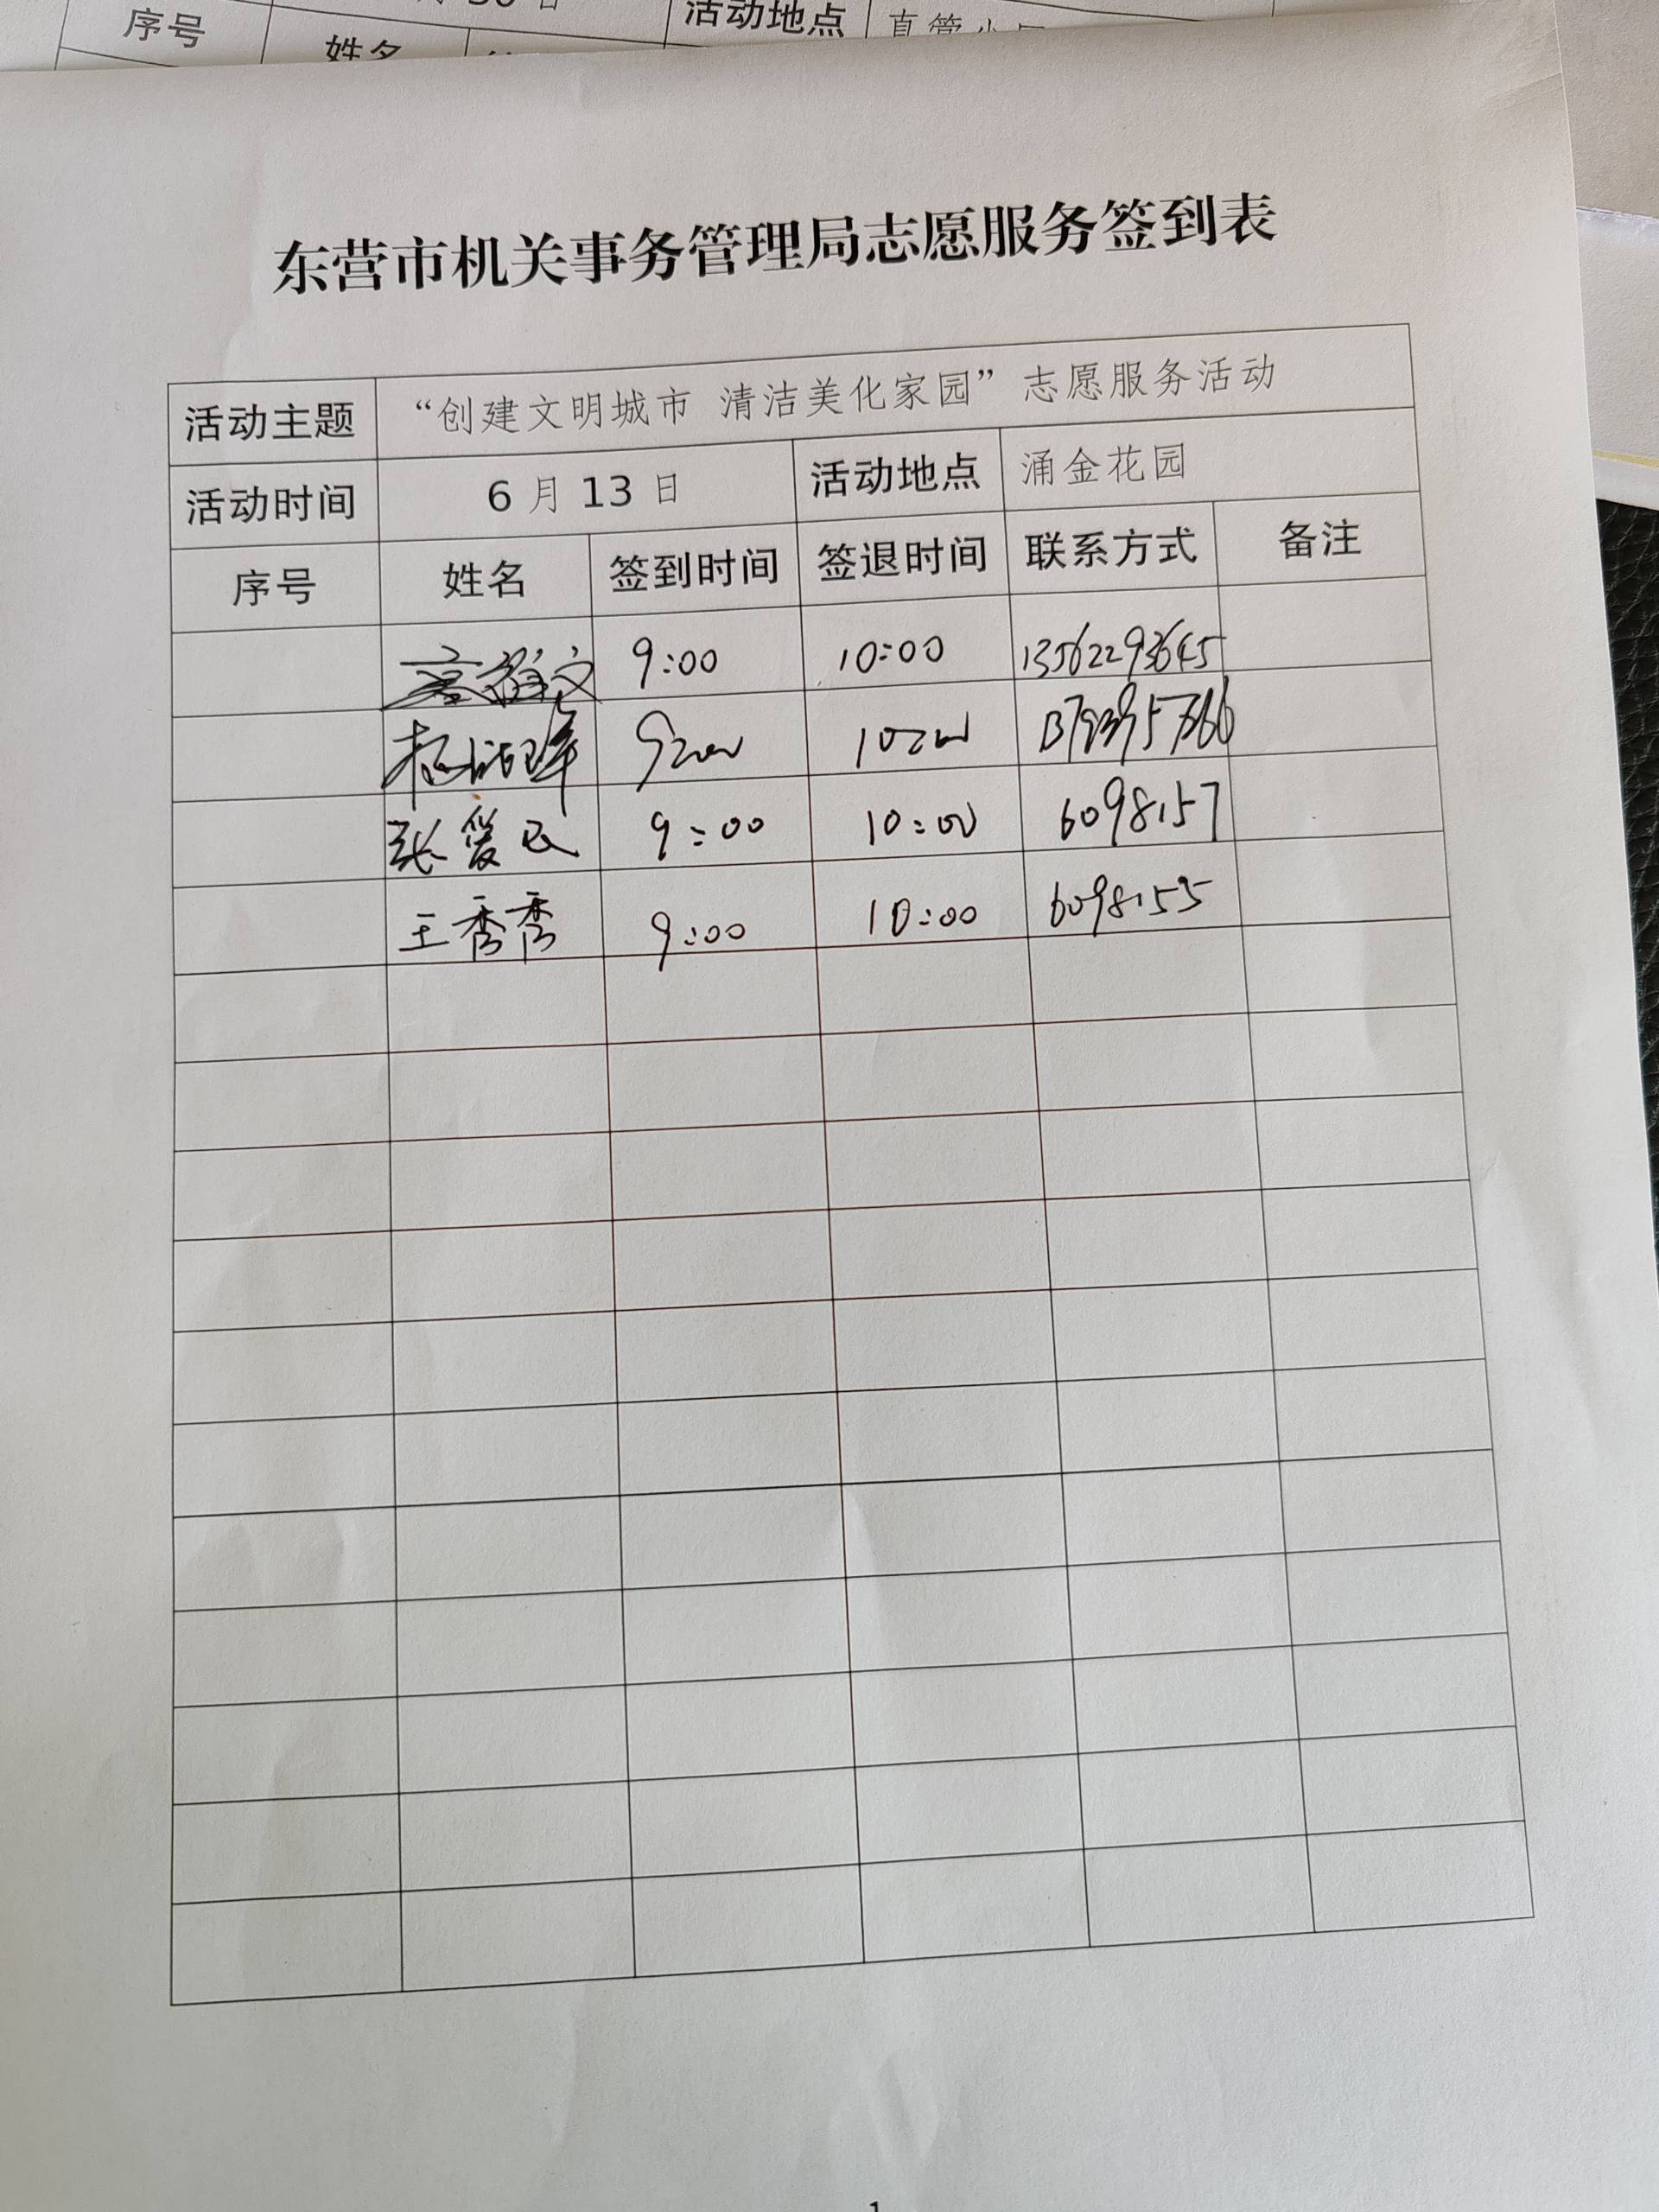 30日
序号 活动地点
姓名
东营市机关事务管理局志愿服务签到表
活动主题 “创建文明城市 清洁美化家园”志愿服务活动
活动时间 6月13日 活动地点 涌金花园
序号 姓名 签到时间 签退时间 联系方式 备注
9:00 10:00 13562293645
9:00 10:00
张爱民 9:00 10:00 6098157
王秀秀 9:00 10:00 6098155
1